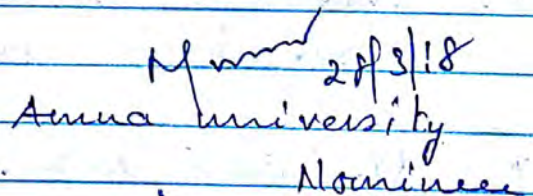 28/3/18
Anna University
Nominee